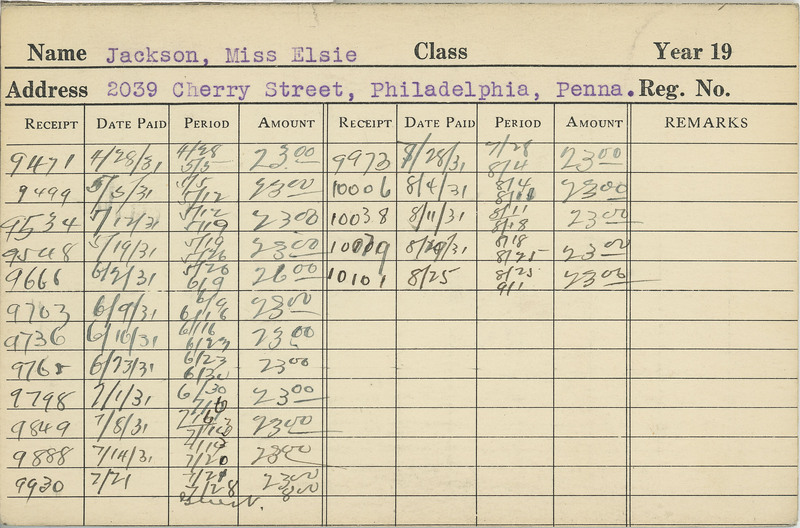 Name Jackson, Miss Elsie Class Year 19
Address 2039 Cherry Street, Philadelphia, Penna. Reg. No.
RECEIPT DATE PAID PERIOD AMOUNT RECEIPT DATE PAID PERIOD AMOUNT REMARKS
9471 4/28/31 4/28 5/5 23.00 9973 7/28/31 7/28 8/4 23.00
9499 5/5/31 5/5 5/12 23.00 10006 8/4/31 8/4 8/11 23.00
9534 5/12/31 5/12 5/19 23.00 10038 8/11/31 8/11 8/18 23.00
9548 5/19/31 5/19 5/26 23.00 8/31 8/18 8/25 23.00
9666 6/2/31 5/26 6/9 26.00 10101 8/25 8/25 9/1 23.00
9703 6/9/31 6/9 6/16 23.00
9736 6/16/31 6/16 6/23 23.00
9765 6/23/31 6/23 6/30 23.00
9798 7/1/31 6/30 23.00
9849 7/8/31 23.00
9888 7/14/31 23.00
9930 7/21 7/21 7/28 23.00
8.00